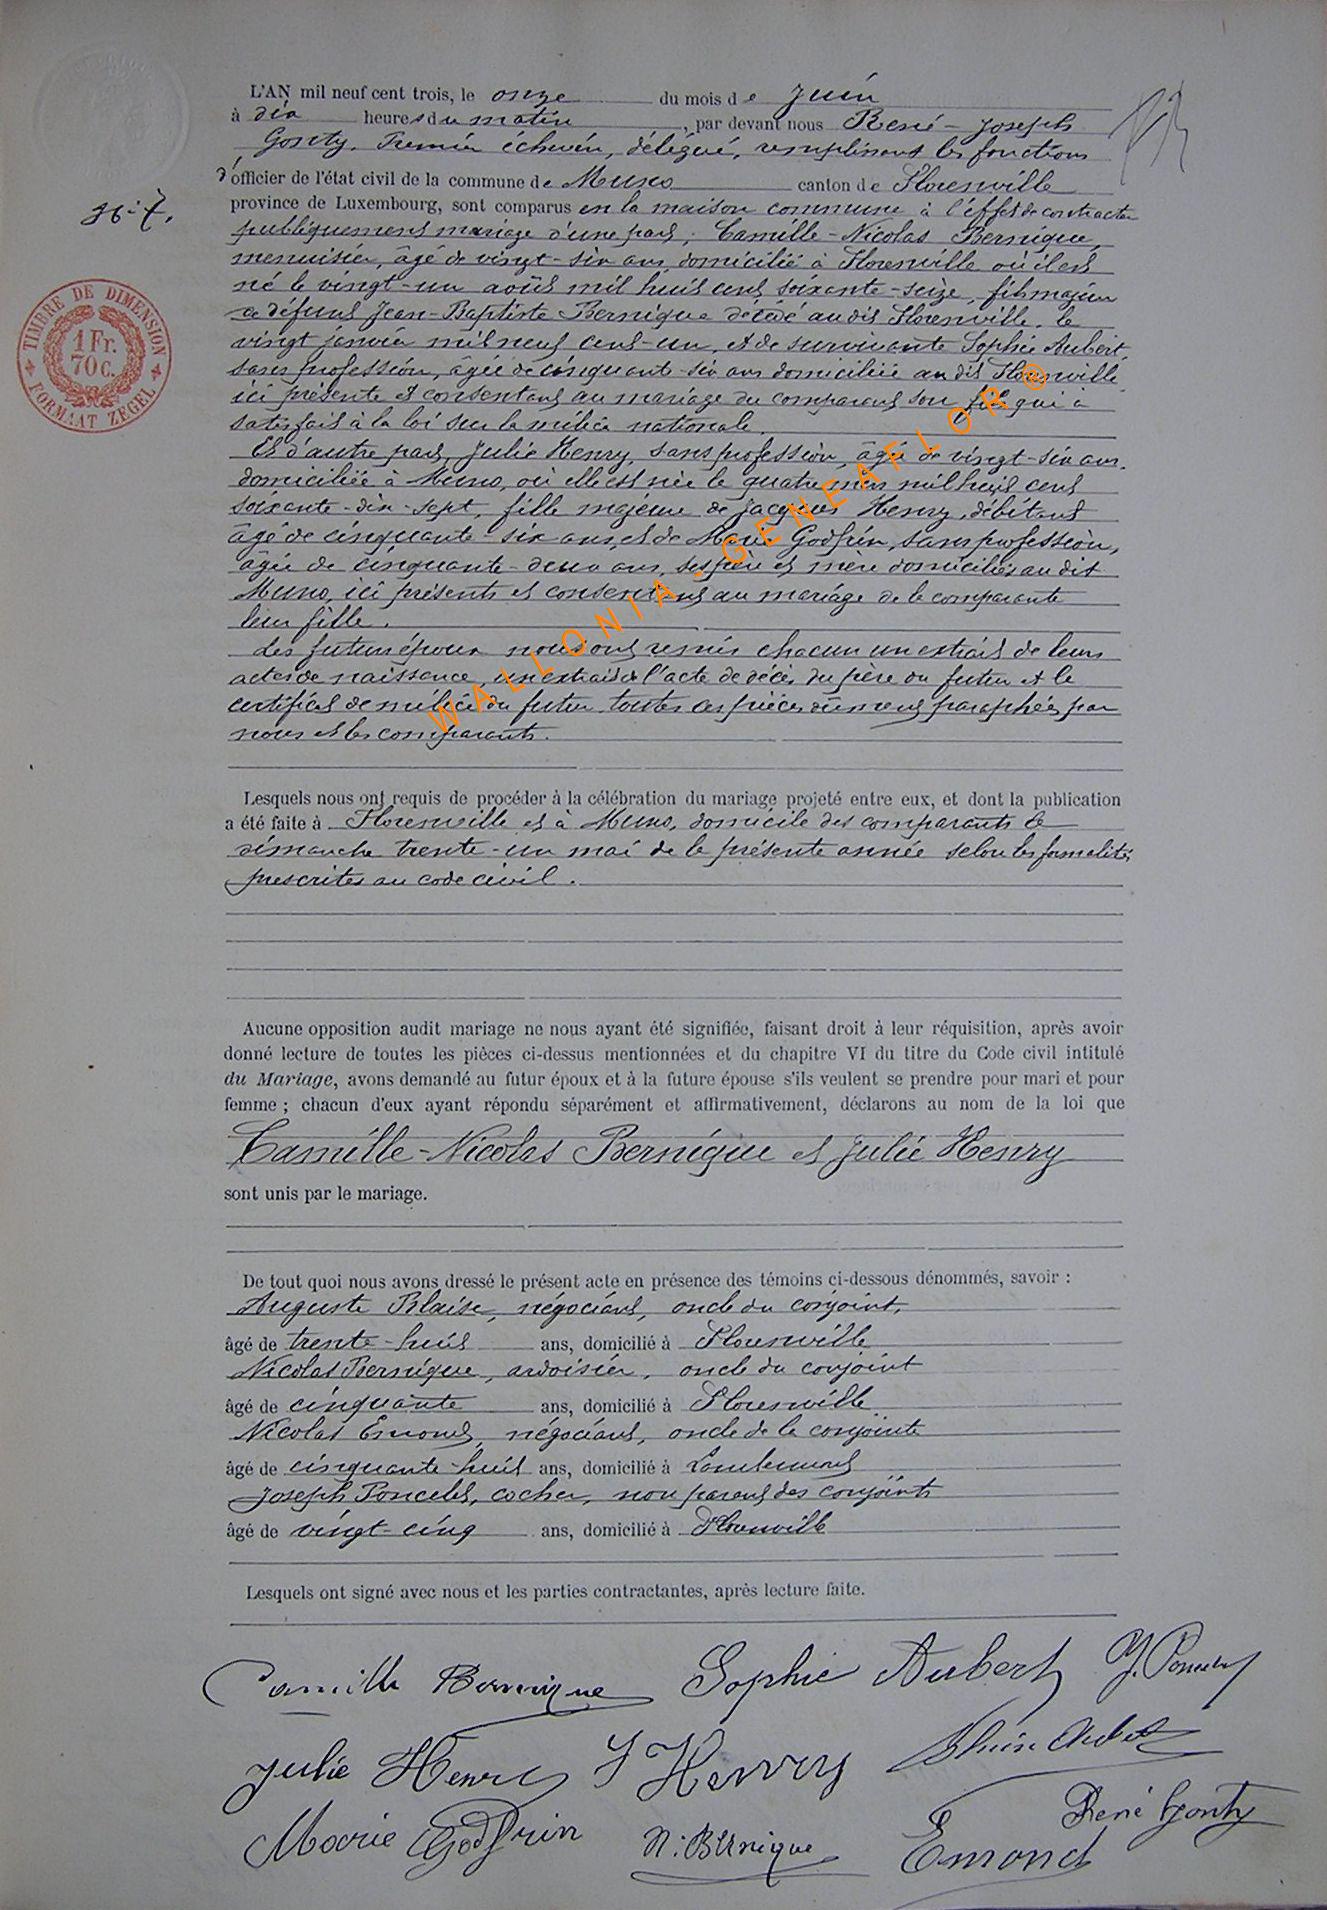 L'AN mil neuf cent trois, le onze du mois de Juin
à dix heures du matin, par devant nous René-Joseph
Gonty, Premier échevin, délégué, remplissant les fonctions
d'officier de l'état civil de la commune de Muno canton de Florenville
province de Luxembourg, sont comparus en la maison commune à l'effet de contracter
publiquement mariage d'une part, Camille-Nicolas Bernique,
menuisier, âgé de vingt-six ans, domicilié à Florenville où il est
né le vingt-un août mil huit cent soixante-seize, fils majeur
de défunt Jean-Baptiste Bernique décédé au dit Florenville, le
vingt janvier mil neuf cent-un, et de survivante Sophie Aubert,
sans profession, âgée de cinquante-six ans domiciliée au dit Florenville
ici présente et consentant au mariage du comparant son fils qui a
satisfait à la loi sur la milice nationale.
Et d'autre part, Julie Henry, sans profession, âgée de vingt-six ans,
domiciliée à Muno, où elle est née le quatre mars mil huit cent
soixante-dix-sept, fille majeure de Jacques Henry, débitant
âgé de cinquante-six ans, et de Marie Godfrin, sans profession,
âgée de cinquante-deux ans, ses père et mère domiciliés au dit
Muno, ici présents et consentant au mariage de la comparante
leur fille.
Les futurs époux nous ont remis chacun un extrait de leurs
actes de naissance, un extrait de l'acte de décès du père du futur et le
certificat de milice du futur, toutes ces pièces dûment paraphées par
nous et les comparants.
Lesquels nous ont requis de procéder à la célébration du mariage projeté entre eux, et dont la publication
a été faite à Florenville et à Muno, domicile des comparants le
dimanche trente-un mai de la présente année selon les formalités
prescrites au code civil.
Aucune opposition audit mariage ne nous ayant été signifiée, faisant droit à leur réquisition, après avoir
donné lecture de toutes les pièces ci-dessus mentionnées et du chapitre VI du titre du Code civil intitulé
du Mariage, avons demandé au futur époux et à la future épouse s'ils veulent se prendre pour mari et pour
femme ; chacun d'eux ayant répondu séparément et affirmativement, déclarons au nom de la loi que
Camille-Nicolas Bernique et Julie Henry
sont unis par le mariage.
De tout quoi nous avons dressé le présent acte en présence des témoins ci-dessous dénommés, savoir :
Auguste Blaise, négociant, oncle du conjoint,
âgé de trente-huit ans, domicilié à Florenville
Nicolas Bernique, ardoisier, oncle du conjoint
âgé de cinquante ans, domicilié à Florenville
Nicolas Emond, négociant, oncle de la conjointe
âgé de cinquante-huit ans, domicilié à
Joseph Poncelet, cocher, non parent des conjoints
âgé de vingt-cinq ans, domicilié à Florenville
Lesquels ont signé avec nous et les parties contractantes, après lecture faite.
Camille Bernique Sophie Aubert J. Poncelet
Julie Henry J Henry
René Gonty
Marie Godfrin N. Bernique Emond
N° 7.
TIMBRE DE DIMENSION
1 Fr.
70 C.
FORMAAT ZEGEL
WALLONIA - GENEAFLOR ®